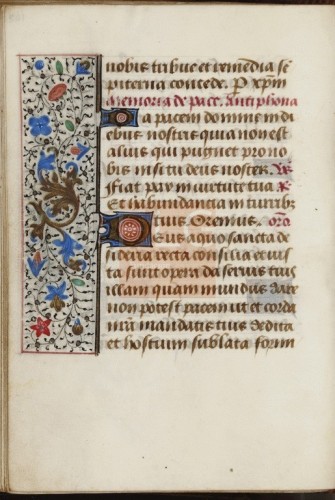 nobis tribue et remedia se
piterna concede. P xpm
Memoria de pace. Antiphona
Da pacem domine in di
ebus nostris quia non est
alius qui pugnet pro no
bis nisi tu deus noster. Vs
Fiat pax in virtute tua R
Et habundantia in turrib
tuis Oremus. oro
Deus a quo sancta de
sideria recta consilia et ius
ta sunt opera da servis tuis
illam quam mundus dare
non potest pacem ut et corda
nra mandatis tuis dedita
et hostium sublata form